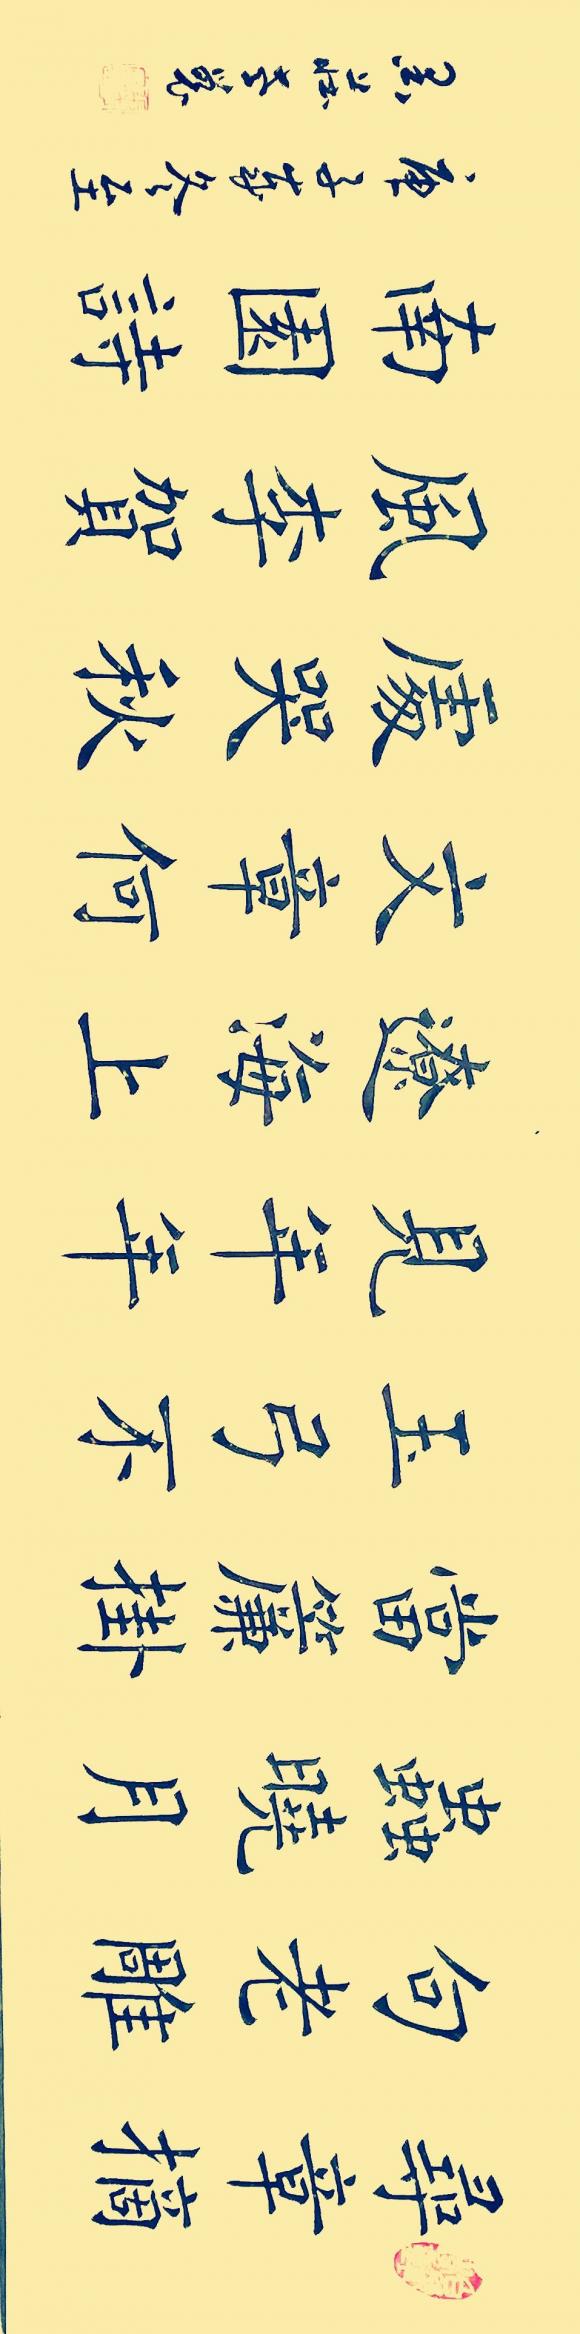 尋章摘
句老雕
蟲曉月
當簾掛
玉弓不
見年年
遼海上
文章何
處哭秋
風李賀
南園詩
庚子歲冬至